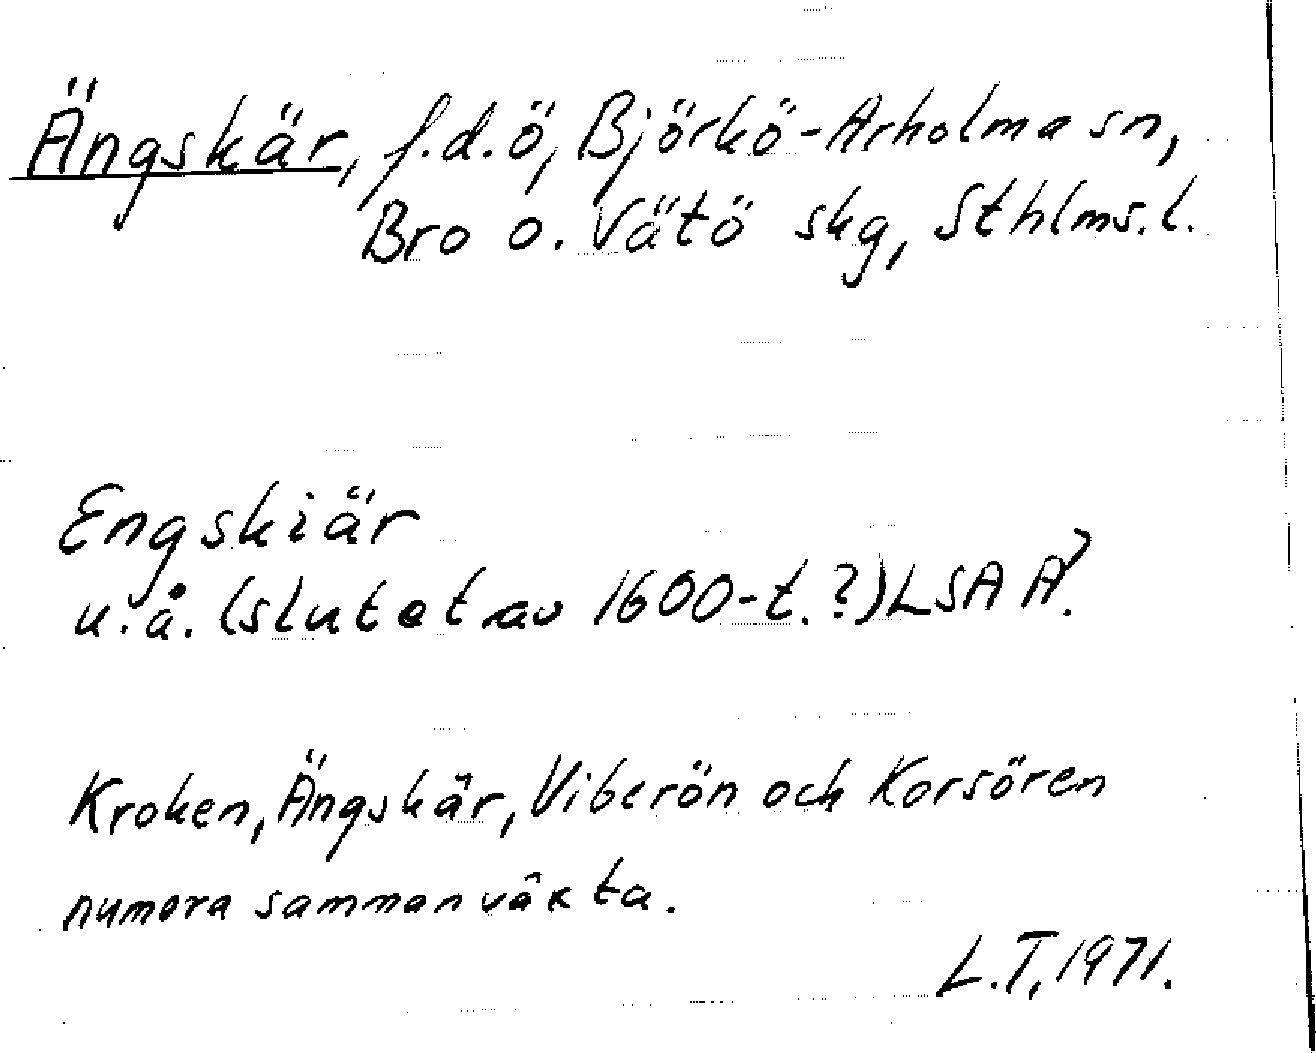 Ängskär, f.d. ö, Björkö-Arholma sn,
Bro o. Vätö skg, Sthlms. l.
Engskiär
u. å. (slutet av 1600-t. ?) LSA A?
Kroken, Ängskär, Viberön och Korsören
numera sammanväxta.
L.T. 1971.